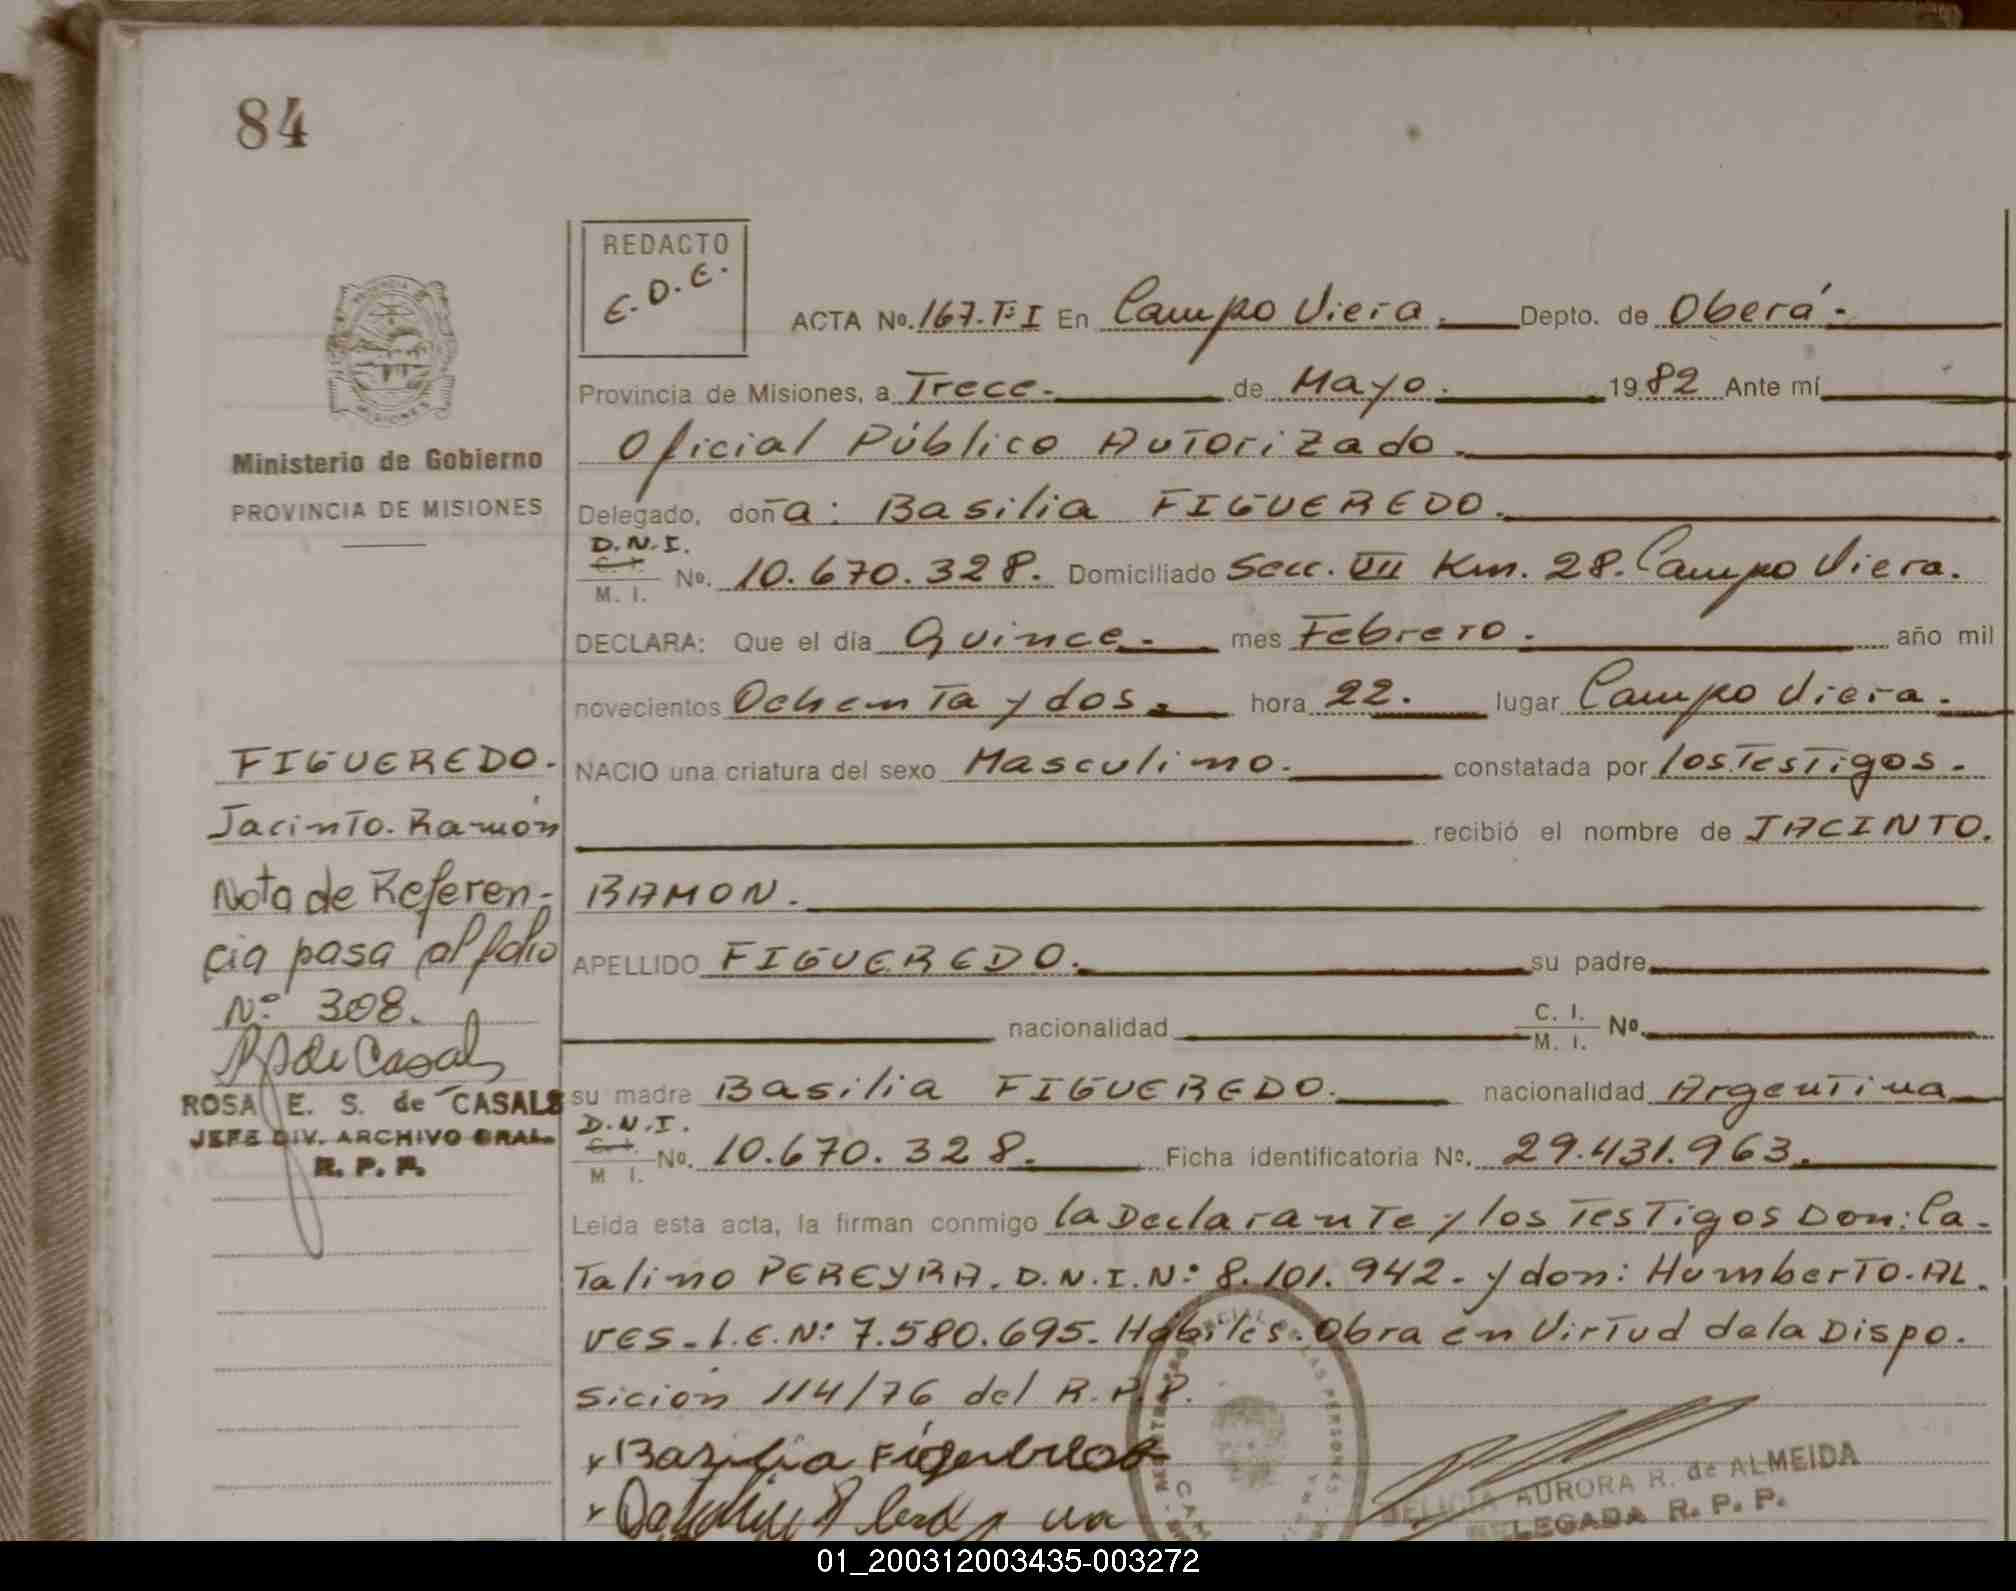 84
REDACTO
E.D.E.
ACTA No. 167.Tº I En Campo Viera. Depto. de Oberá.
Provincia de Misiones, a Trece. de Mayo. 1982 Ante mí
Oficial Público Autorizado.
Ministerio de Gobierno
PROVINCIA DE MISIONES
Delegado, doña: Basilia FIGUEREDO.
D.N.I.
C. I.
M. I.
No. 10.670.328. Domiciliado Secc. VII Km. 28. Campo Viera.
DECLARA: Que el día Quince. mes Febrero. año mil
novecientos Ochenta y dos. hora 22. lugar Campo Viera.
NACIO una criatura del sexo Masculino. constatada por los Testigos.
recibió el nombre de JACINTO.
RAMON.
APELLIDO FIGUEREDO. su padre
nacionalidad C. I. M. I. No.
su madre Basilia FIGUEREDO. nacionalidad Argentina
D.N.I.
C. I.
M I.
No. 10.670.328. Ficha identificatoria No. 29.431.963.
Leída esta acta, la firman conmigo la Declarante y los Testigos Don: Ca-
Talino PEREYRA. D.N.I.Nº 8.101.942. y don: Humberto. AL.
VES. L.E.Nº 7.580.695. Hábiles. Obra en Virtud de la Dispo.
sición 114/76 del R.P.P.
FIGUEREDO.
Jacinto. Ramón
Nota de Referen-
cia pasa al folio
Nº 308.
R de Casals
ROSA E. S. de CASALS
JEFE DIV. ARCHIVO GRAL.
R. P. P.
x Basilia Figueredo
x
LAS PERSONAS
DELICIA AURORA R. de ALMEIDA
DELEGADA R. P. P.
01_200312003435-003272